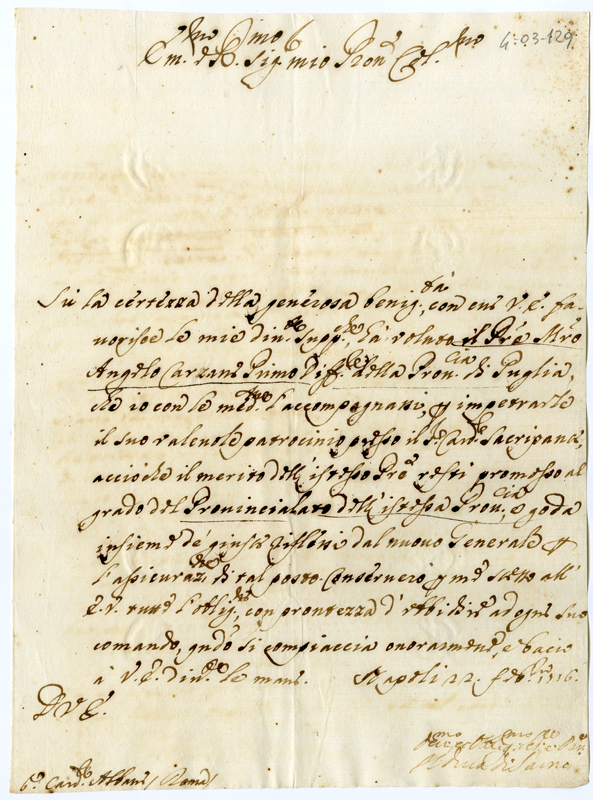 Em.mo e R.mo Sig. mio Pron. Col.mo
4-03-129
Sù la certezza della generosa benig.tà, con cui V. E. fa-
uorisce le mie diu.me supp.che hà voluto il Prē Mrō
Angelo Carzani Primo Diff.re della Prou.cia di Puglia,
che io con le med.me l'accompagnassi, p impetrarle
il suo valeuole patrocinio presso il S.r Card.le Sacripanti,
acciòche il merito dell'istesso Prē resti promosso al
grado del Prouincialato dell'istessa Prou.cia, e goda
insieme de' giusti riflessi dal nuouo Generale p
l'assicuraz.ne di tal posto. Conseruerò p me stesso all'
E. V. tutte l'oblig.ni, con prontezza d'vbidire ad ogni suo
comando, qndo si compiaccia onorarmene, e bacio
à V. E. diu.te le mani. Napoli 22. Feb.ro 1716.
D V E.
S.r Card.le Albani / Roma /